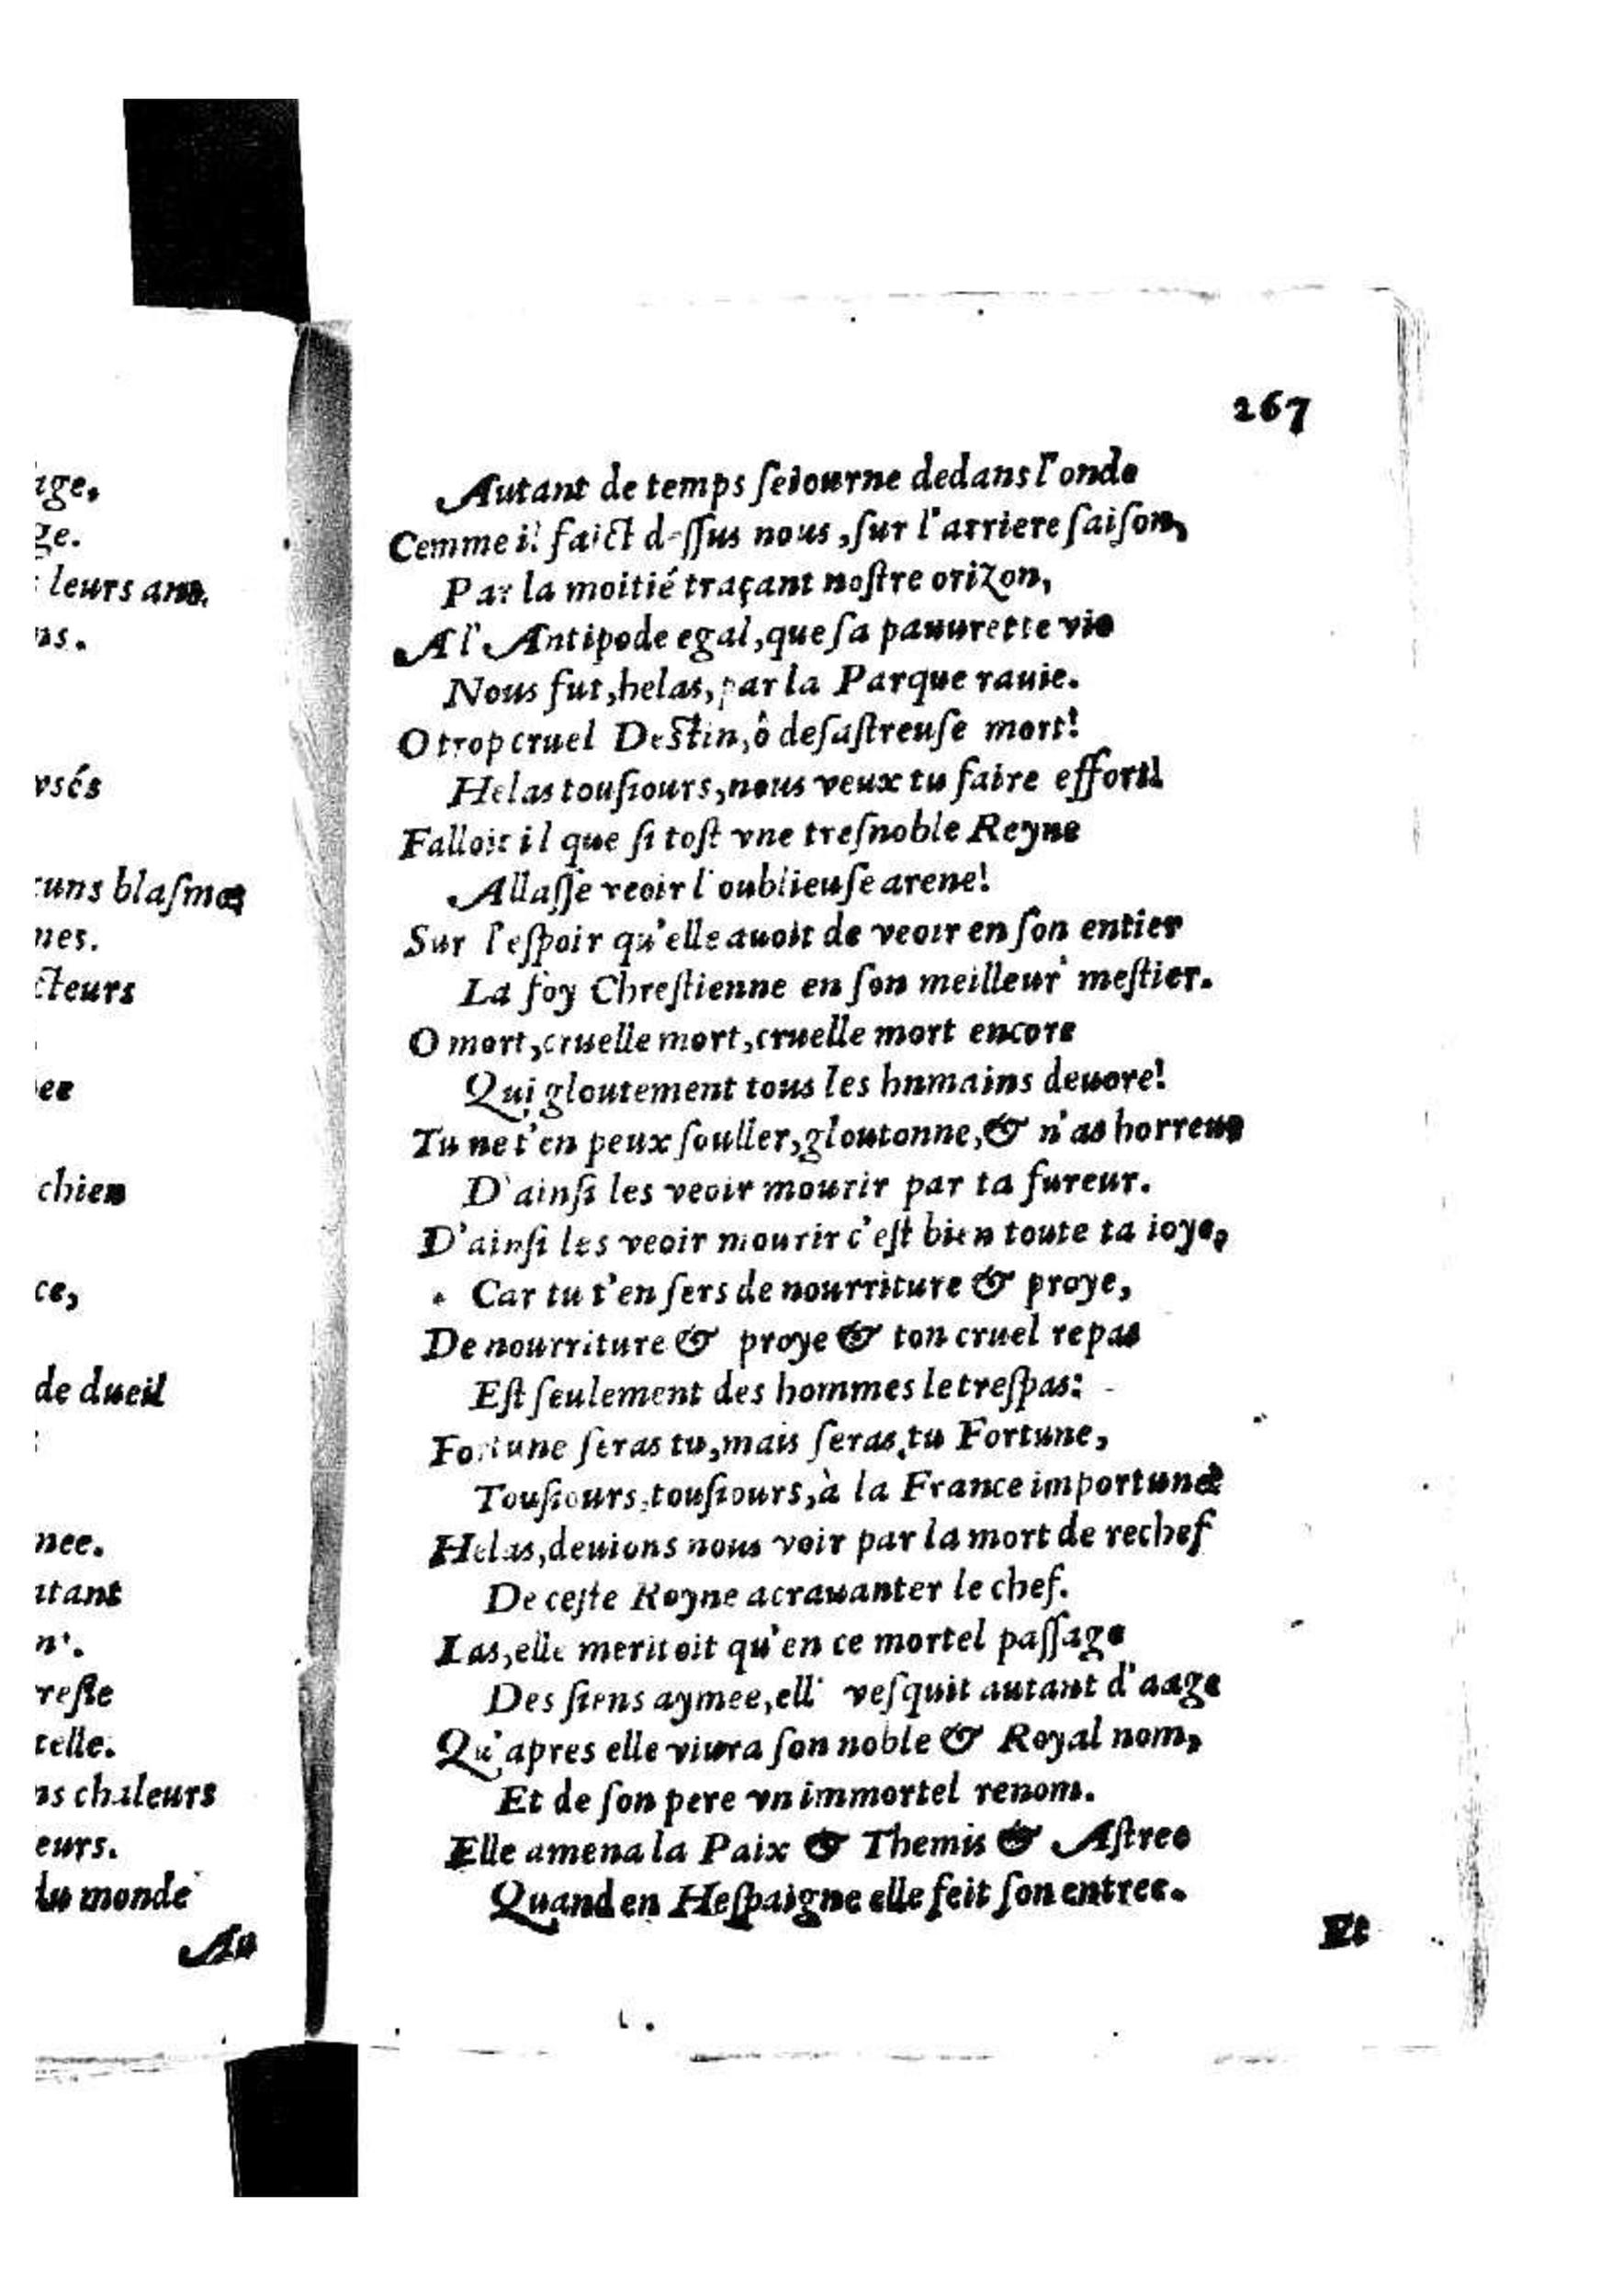 267
Autant de temps ſeiourne dedans l'onde
Cemme il faict deſſus nous, ſur l'arriere ſaiſon,
Par la moitié traçant noſtre orizon,
A l'Antipode egal, que ſa pauurette vie
Nous fut, helas, par la Parque rauie.
O trop cruel Deſtin, ô deſaſtreuſe mort!
Helas touſiours, nous veux tu faire effort!
Falloit il que ſi toſt vne treſnoble Reyne
Allaſſe veoir l'oublieuſe arene!
Sur l'eſpoir qu'elle auoit de veoir en ſon entier
La foy Chreſtienne en ſon meilleur meſtier.
O mort, cruelle mort, cruelle mort encore
Qui gloutement tous les hnmains deuore!
Tu ne t'en peux ſouller, gloutonne, & n'as horreur
D'ainſi les veoir mourir par ta fureur.
D'ainſi les veoir mourir c'eſt bien toute ta ioye,
Car tu t'en ſers de nourriture & proye,
De nourriture & proye & ton cruel repas
Eſt ſeulement des hommes le treſpas:
Fortune ſeras tu, mais ſeras tu Fortune,
Touſiours, touſiours, à la France importune?
Helas, deuions nous voir par la mort de rechef
De ceſte Royne acrauanter le chef.
Las, elle meritoit qu'en ce mortel paſſage
Des ſiens aymee, ell' veſquit autant d'aage
Qu'apres elle viura ſon noble & Royal nom,
Et de ſon pere vn immortel renom.
Elle amena la Paix & Themis & Aſtree
Quand en Heſpaigne elle feit ſon entree.
Et
age,
ge.
leurs ans.
ns.
vsés
cuns blaſmes
mes.
cteurs
ee
chien
ce,
de dueil
nee.
utant
n'.
reſte
telle.
ns chaleurs
eurs.
du monde
Au